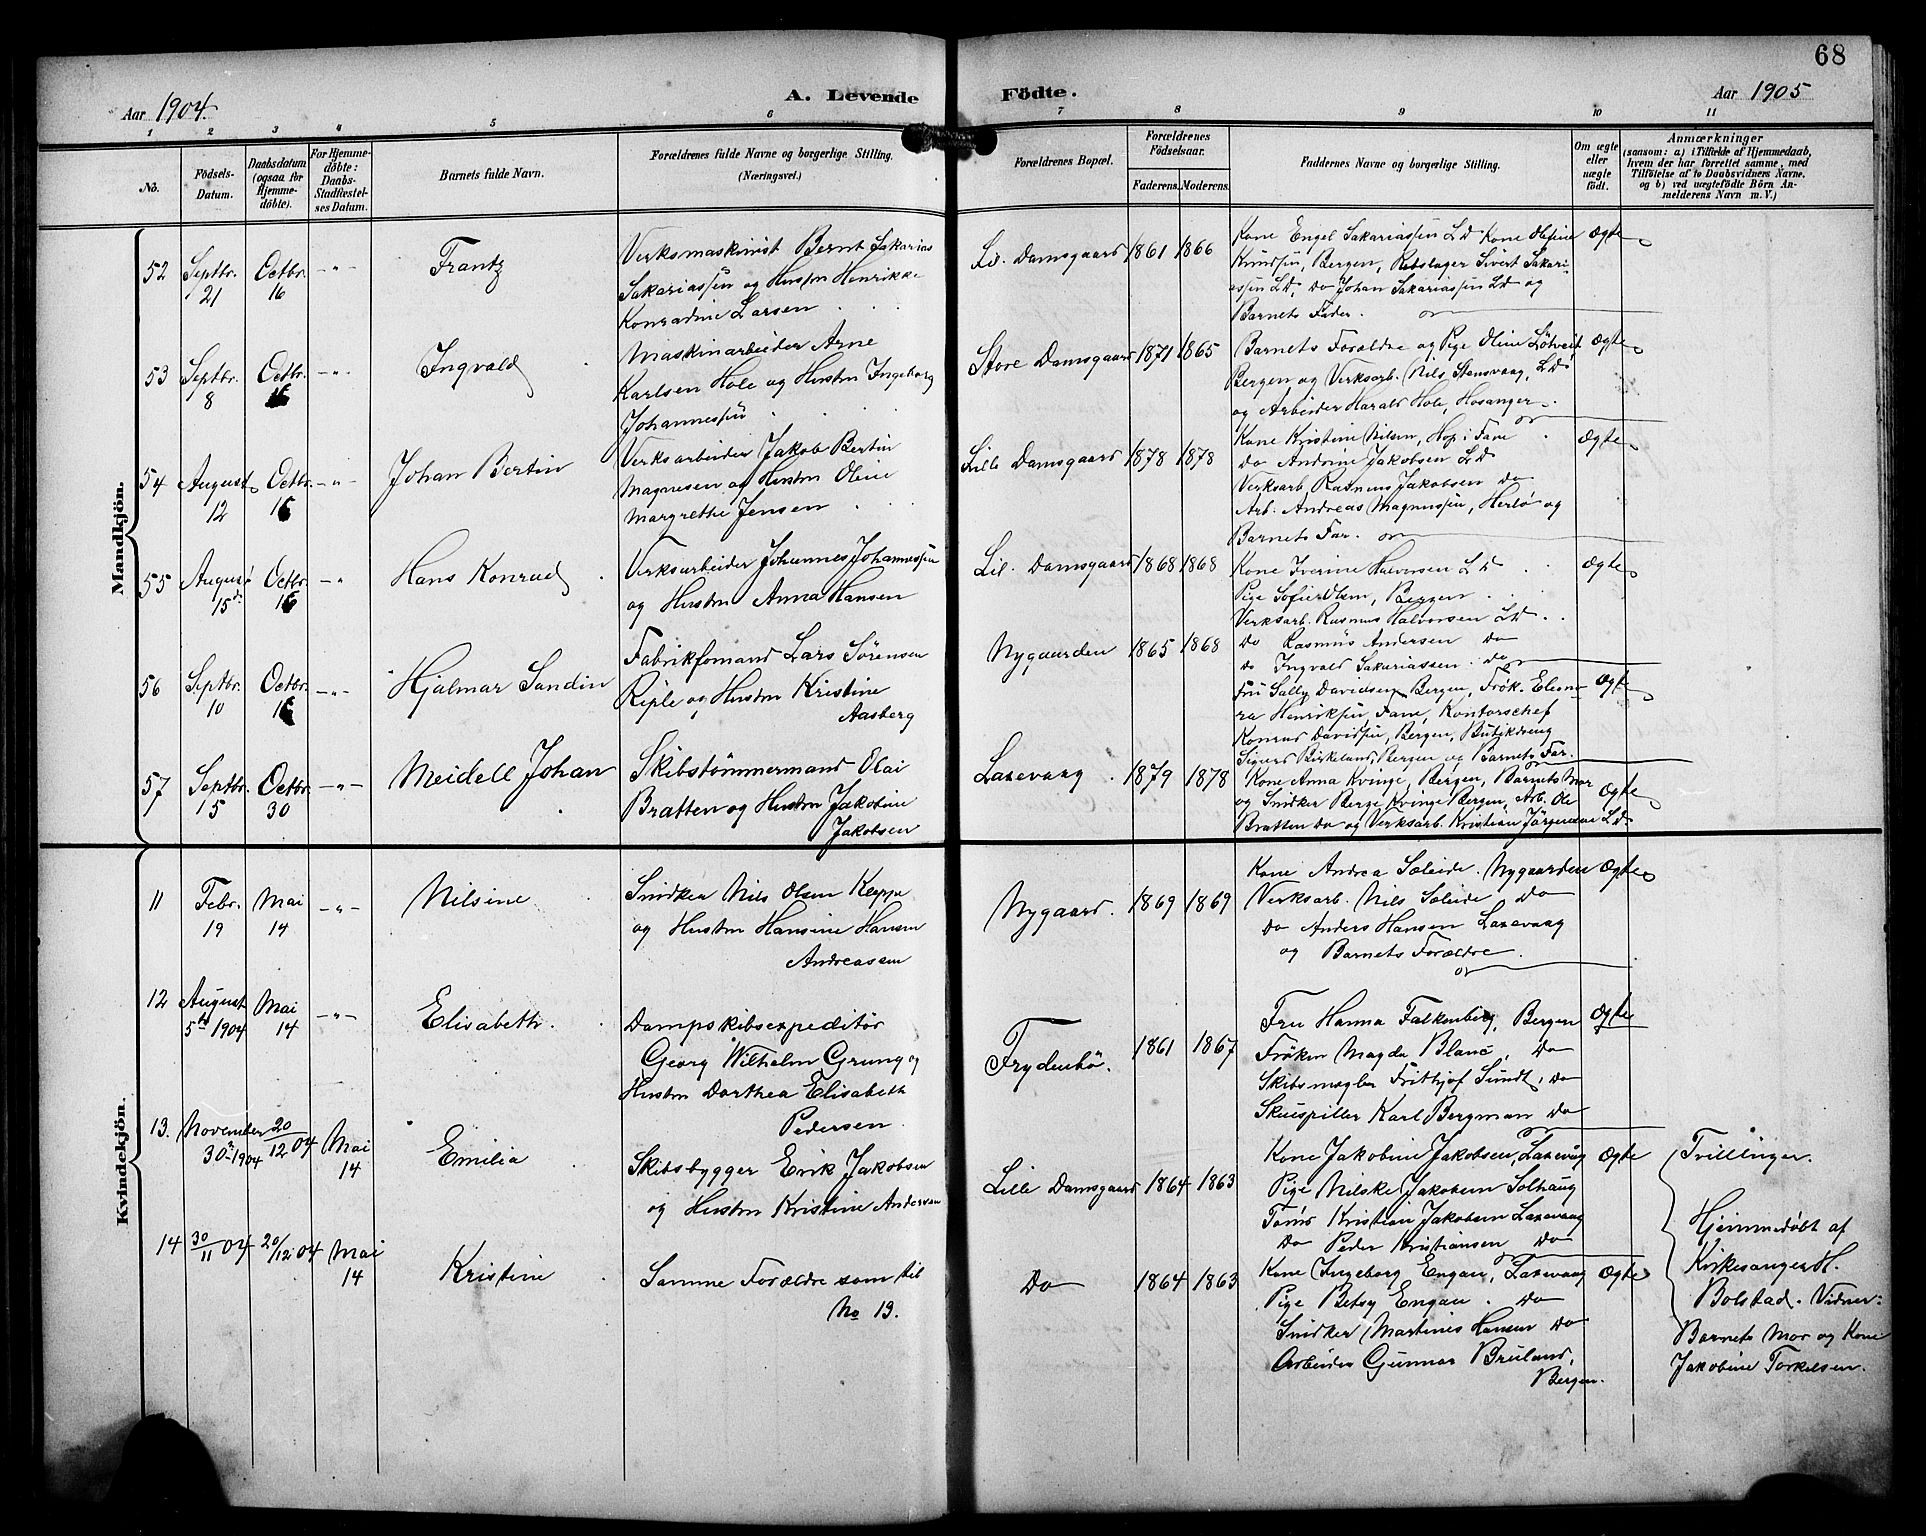 68
Aar 1904.
A. Levende Födte.
Aar 1905
1 2 3 4 5 6 7 8 9 10 11
No.
Födsels-Datum.
Daabsdatum (ogsaa for Hjemme-döbte).
For Hjemme-döbte: Daabs-Stadfæstel-ses Datum.
Barnets fulde Navn.
Forældrenes fulde Navne og borgerlige Stilling.
(Næringsvei.)
Forældrenes Bopæl.
Forældrenes Födselsaar.
Faderens. Moderens.
Faddernes Navne og borgerlige Stilling.
Om ægte eller uægte födt.
Anmærkninger
(saasom: a) i Tilfælde af Hjemmedaab,
hvem der har forrettet samme, med
Tilföielse af to Daabsvidners Navne.
og b) ved uægtefödte Börn An-
melderens Navn m. V.)
Mandkjön.
52 Septbr. 21 Octbr. 16 -"- Frantz
Verksmaskinist Bernt Sakarias
Sakariassen og Hustru Henrikke
Konradine Larsen
Lil. Damsgaard 1861 1866
Kone Engel Sakariassen L D Kone Olefine
Knudsen, Bergen, Rebslager Sivert Sakari-
assen L D, Do Johan Sakariassen L D og
Barnets Fader.
Ægte
53 Septbr. 8 Octbr. 16 -"- Ingvald
Maskinarbeider Arne
Karlsen Hole og Hustru Ingeborg
Johannessen
Store Damsgaard 1871 1865
Barnets Forældre og Pige Oline Lötveit
Bergen og Verksarb. Nils Stensvaag, L D
og Arbeider Harald Hole, Hosanger.
Ægte
54 August 12 Octbr. 16 -"- Johan Bertin
Verksarbeider Jakob Bertin
Magnesen og Hustru Oline
Margrethe Jensen
Lille Damsgaard 1878 1878
Kone Kristine Nilsen, Hop i Fane
Do Andrine Jakobsen L D
Verksarb. Rasmus Jakobsen Do
Arb. Andreas Magnussen, Herlø og
Barnets Far.
Ægte
55 August 15de Octbr. 16 -"- Hans Konrad
Verksarbeider Johannes Johannessen
og Hustru Anna Hansen
Lil. Damsgaard 1868 1868
Kone Iverine Halvorsen L D
Pige Sofie Olsen, Bergen
Verksarb. Rasmus Halvorsen L D
Do Rasmus Andersen Do
Do Ingvald Sakariassen Do
Ægte
56 Septbr. 10 Octbr. 16 -"- Hjalmar Sandin
Fabrikfomand Lars Sørensen
Riple og Hustru Kristine
Aasberg
Nygaarden 1865 1868
Fru Sally Davidsen Bergen, Frøk. Eleono-
ra Henriksen, Fane, Kontorschef
Konrad Davidsen, Bergen, Butikdreng
Sigurd Birkeland, Bergen og Barnets Far.
Ægte
57 Septbr. 15 Octbr. 30 -"- Meidell Johan
Skibstømmermand Olai
Bratten og Hustru Jakobine
Jakobsen
Laxevaag 1879 1878
Kone Anna Kvinge, Bergen, Barnets Mor
og Snidker Berge Kvinge Bergen, Arb. Ole
Bratten Do og Verksarb. Kristian Jörgensen L D.
Ægte
Kvindekjön.
11 Febr. 19 Mai 14 -"- Nilsine
Snidker Nils Olsen Keppe
og Hustru Hansine Hansen
Andreasen
Nygaard. 1869 1869
Kone Andrea Soleide. Nygaarden
Verksarb. Nils Soleide Do
Do Anders Hansen Laxevaag
og Barnets Forældre.
Ægte
12 August 5te 1904 Mai 14 -"- Elisabeth.
Dampskibsexpeditör
Georg Wilhelm Grung og
Hustru Dorthea Elisabeth
Pedersen
Frydenbö. 1861 1867
Fru Hanna Falkenberg, Bergen
Frøken Magda Blanc, Do
Skibsmægler Frithjof Sundt, Do
Skuespiller Karl Bergman Do
Ægte
13. November 30 1904 20/12 04 Mai 14 Emilia
Skibsbygger Erik Jakobsen
og Hustru Kristine Andersen
Lille Damsgaard 1864 1863
Kone Jakobine Jakobsen, Laxevaag
Pige Nilske Jakobsen Solhaug
Tömr Kristian Jakobsen Laxevaag
Do Peder Kristiansen Do
Ægte
14 30/11 04 20/12 04 Mai 14 Kristine
Samme Forældre som til
No 13.
Do 1864 1863
Kone Ingeborg Engan, Laxevaag
Pige Betsy Engan. Do
Snidker Martines Hansen Do
Arbeider Gunnar Bruland,
Bergen.
Ægte
Tvillinger.
Hjemmedöbt af
Kirkesanger H.
Bolstad. Vidner:
Barnets Mor og Kone
Jakobine Torkelsen.